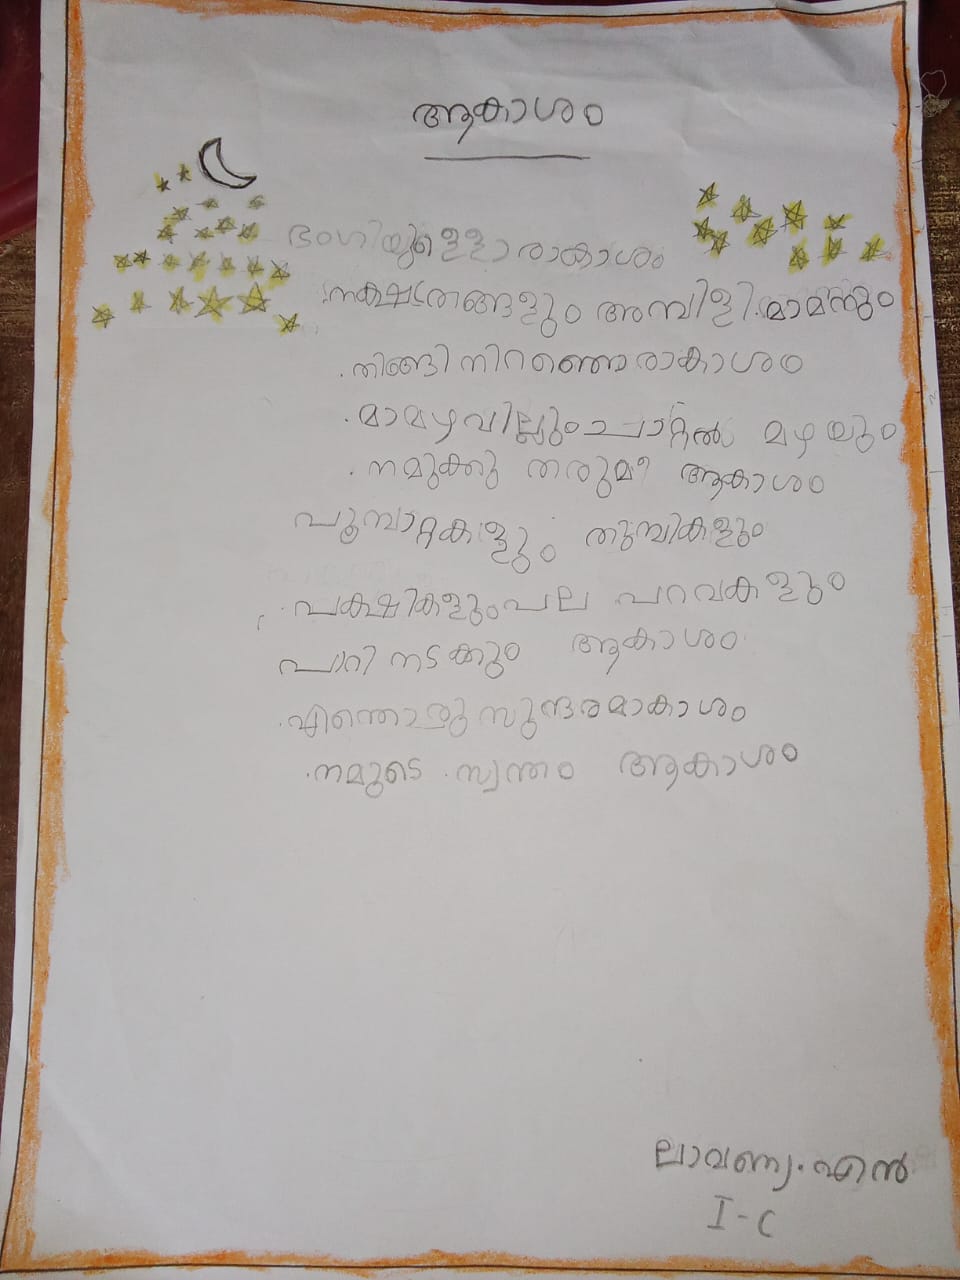 ആകാശം
ഭംഗിയുള്ളൊരാകാശം
നക്ഷത്രങ്ങളും അമ്പിളി മാമനും
തിങ്ങി നിറഞ്ഞൊരാകാശം
മാമഴവില്ലും ചാറ്റൽ മഴയും
നമുക്കു തരുമീ ആകാശം
പൂമ്പാറ്റകളും തുമ്പികളും
പക്ഷികളും പല പറവകളും
പാറി നടക്കും ആകാശം
എന്തൊരു സുന്ദരമാകാശം
നമുടെ സ്വന്തം ആകാശം
ലാവണ്യ.എൻ
I-C